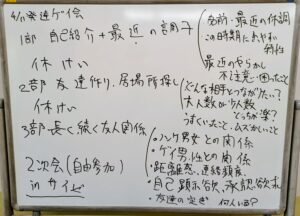 4/11 発達ゲイ会
1部 自己紹介+最近?の調子
休けい
2部 友達作り、居場所探し
休けい
3部 長く続く友人関係
2次会(自由参加)
in サイゼ
名前・最近の体調
この時期におやすい
特性
最近のやらかし
不注意・困ったこと
どんな相手とつながりたい?
大人数か少人数
どっちが楽?
うまくいったこと・ムズかしいこと
・ノンケ男女との関係
・ゲイ男性との関係
・距離感、連絡頻度
・自己顕示欲、承認欲求
・友達の定ギ 何人いる?